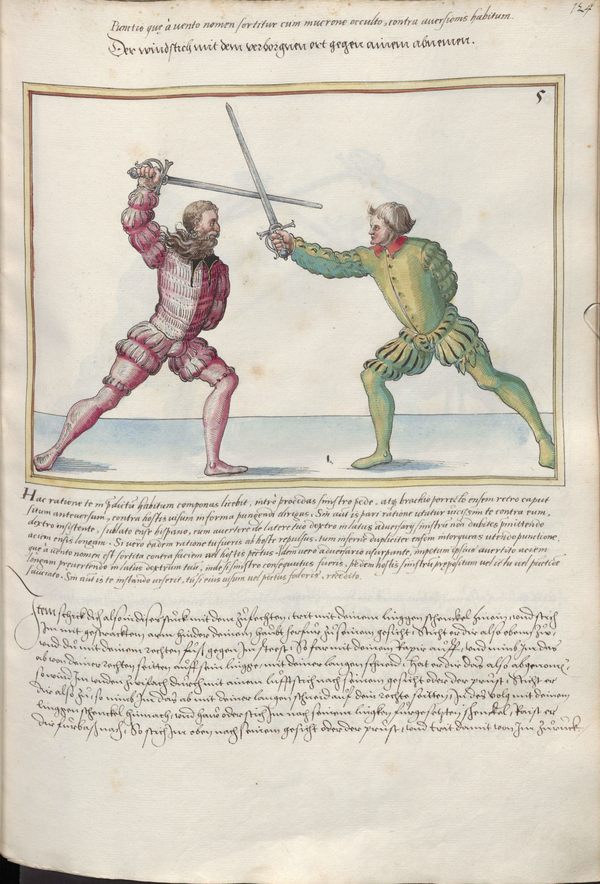 124
Punctio quę à vento nomen sortitur cum mucrone occulto, contra aversionis habitum.
Der windstich mit dem verborgnen ort gegen ainem abnemen.
5
Hac ratione te in habitum componas licebit, intrò procedas sinistro pede, atq; brachio porrecto ensem retro caput
situm anteuersum, contra hostis uisum in forma pungendi dirigas. Sin aut is pari ratione utatur uicissim te contra eum,
dextro insistente, sublato ense hispano, eum auertere de latere tuo dextro in latus aduersarij sinistrũ non dubites, mittendo
aciem ensis longam. Si uero eadem ratione is fueris ab hoste repulsus, tum inferne dupliciter ensem interqueras utendo punctione,
quę a uento nomen est sortita contra faciem uel hostis pectus. Idem uero aduersario usurpante, impetum ipsius auertito aciem
longam preuertendo in latus dextrum tuũ, inde si sinistro consequutus fueris, pedem hostis sinistrũ propositum uel ictu uel punctione
sauciato. Sin aut is te instando urserit, tu si eius uisum uel pectus foderis, redito.
Item schick dich also in diser stuck mit dem zufechten, trit mit deinem linggen schenckel hinein, und stich
Im mit gestracktem arm hinder deinem haubt herfur zu seinem gesicht, Sticht er dir also oben zu,
und du mit deinem rechten fuoß gegen Im steest, So far mit deinem Rapir auff, und nimb Im das
ab von deiner rechten seitten auff sein lingge mit deiner langen schneid, Hat er dir das also abgenomen,
so wind Im unden zwifach durch mit ainem lufftstich nach seinem gesicht oder der prust, Sticht er
dir also zu, so nimb Im das ab mit deiner langen schneid auf dein rechte seitten, In des volg mit deinem
linggen schenckel hinnach, und haw oder stich Im nach seinem linggen fürgesetzten schenckel, Raist er
dir fürbaß nach, So stich Im oben nach seinem gesicht oder der prust, und trit damit von Im zuruck